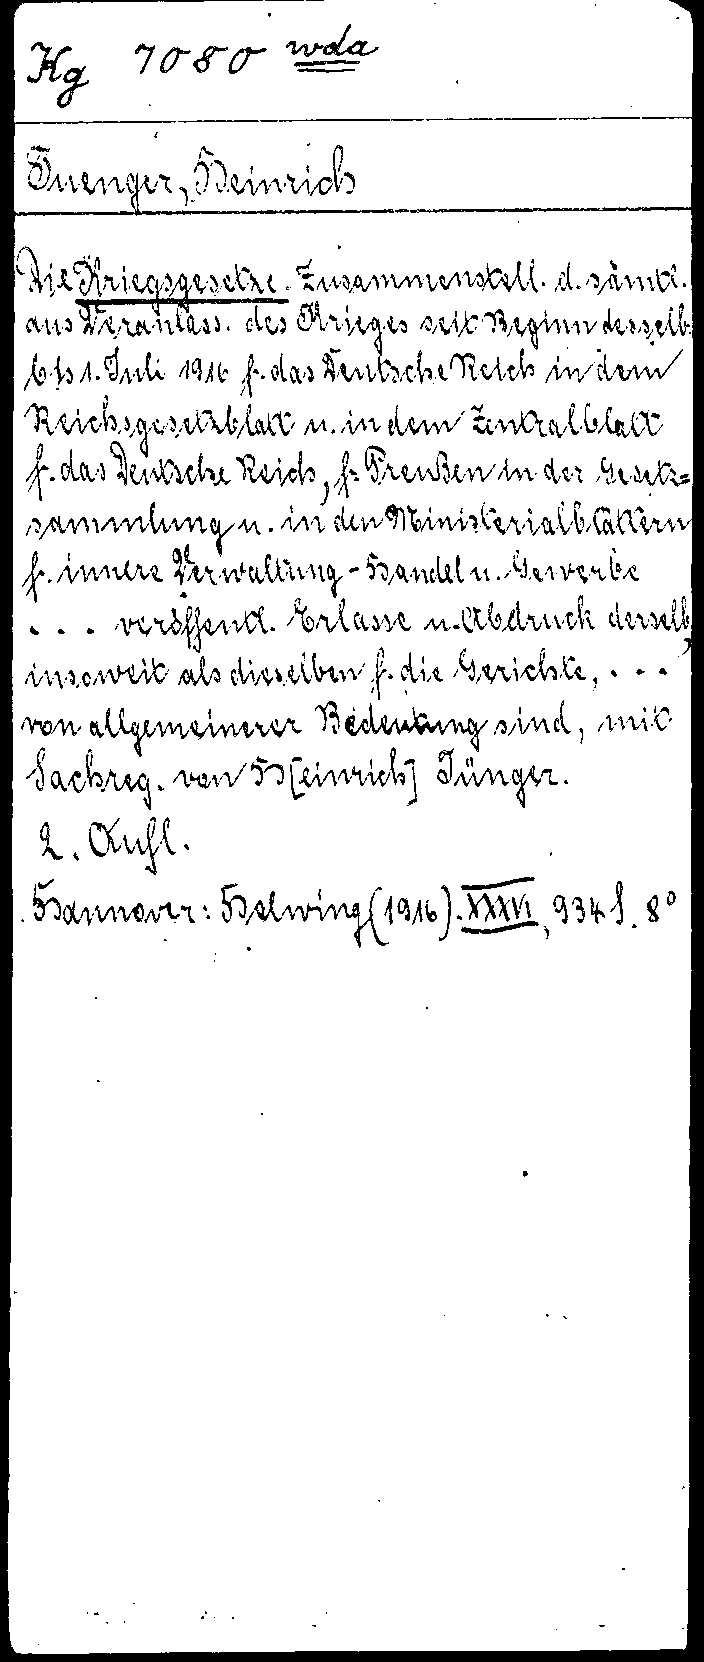 Kg 7080 wda
Juenger, Heinrich
Die Kriegsgesetze. Zusammenstell. d. sämtl.
aus Veranlass. des Krieges seit Beginn desselb.
bis 1. Juli 1916 f. das Deutsche Reich in dem
Reichsgesetzblatt u. in dem Zentralblatt
f. das Deutsche Reich, f. Preußen in der Gesetz=
sammlung u. in den Ministerialblättern
f. innere Verwaltung - Handel u. Gewerbe
... veröffentl. Erlasse u. Abdruck derselb.,
insoweit als dieselben f. die Gerichte, ...
von allgemeinerer Bedeutung sind, mit
Sachreg. von H[einrich] Jünger.
2. Aufl.
Hannover: Helwing (1916). XXXVI, 934 S. 8°